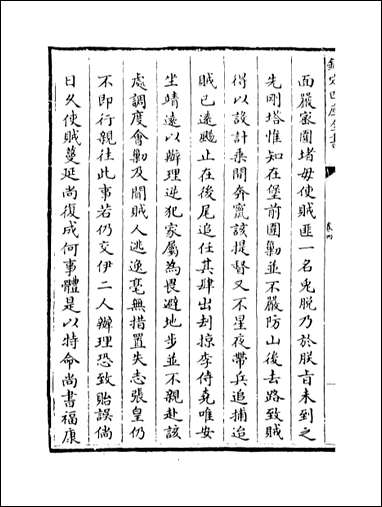 欽定四庫全書
卷四
面嚴密圍堵毋使賊匪一名兎脫乃於朕旨未到之
先剛塔惟知在堡前圍勦並不嚴防山後去路致賊
得以設計乘間奔竄該提督又不星夜帶兵追捕迨
賊已遠颺止在後尾追任其肆出刦掠李侍堯唯安
坐靖遠以辦理逆犯家屬為畏避地步並不親赴該
處調度會勦及聞賊人逃逸毫無措置失志張皇仍
不即行親往此事若仍交伊二人辦理恐致貽誤倘
日久使賊蔓延尚復成何事體是以特命尚書福康